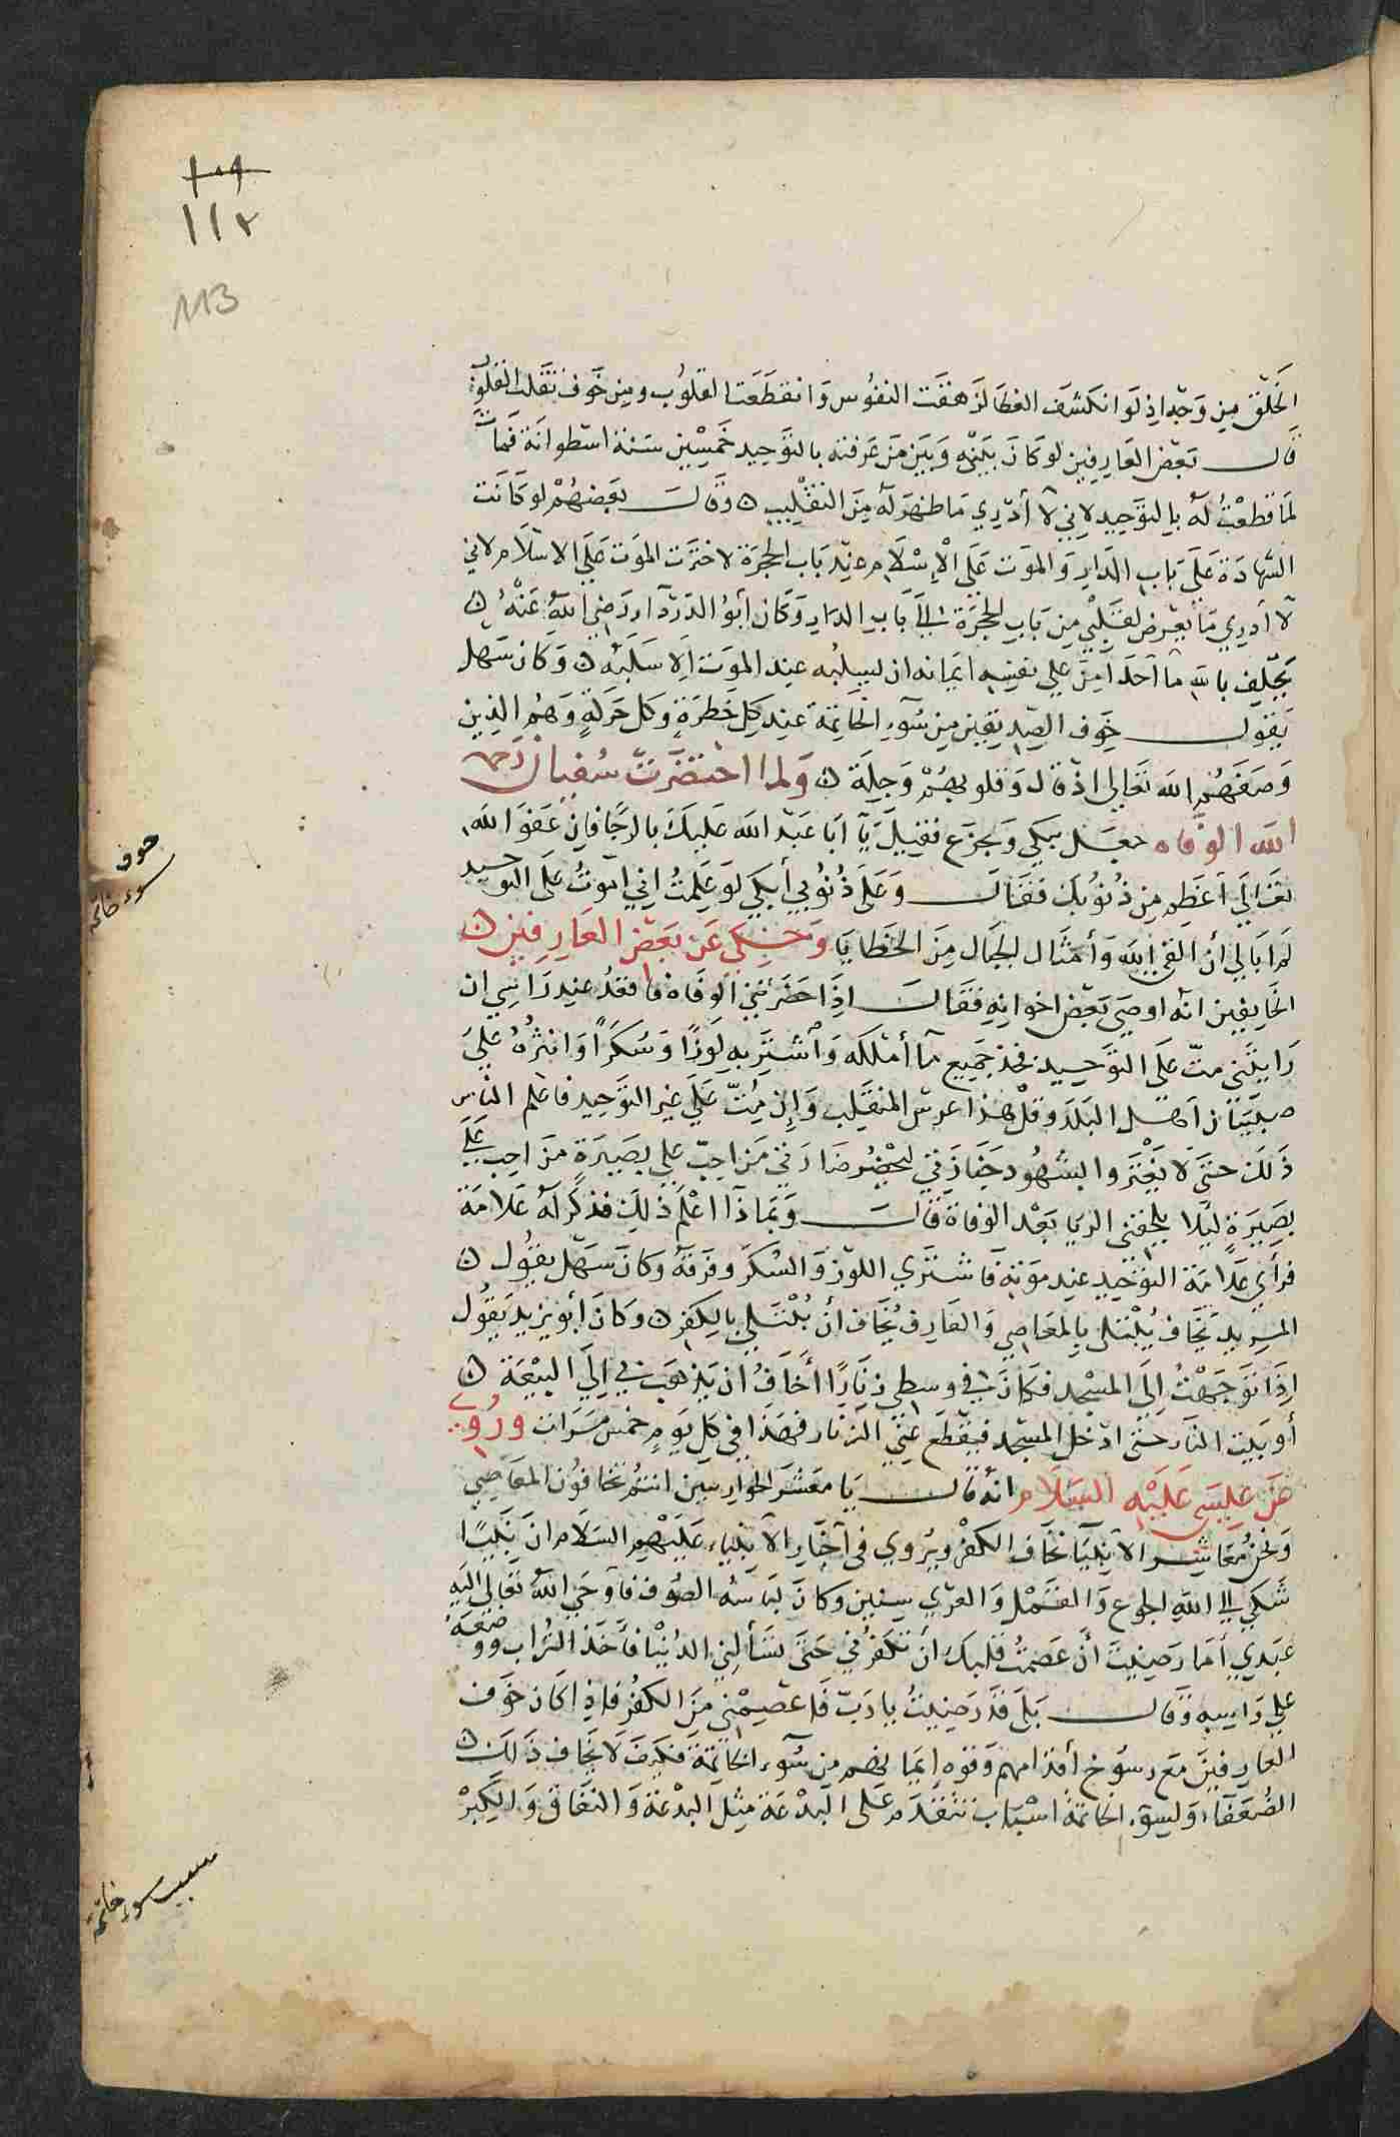 ١٠٩
١١٢
113
الخلق من وجه اذ لو انكشف الغطا لزهقت النفوس وانقطعت القلوب ومن خوف تقلب القلوب
قال بعض العارفين لو كان بيني وبين من عرفته بالتوحيد خمسين سنة اسطوانة فمات
لما قطعت له بالتوحيد لاني لا أدري ما ظهر له من التقليب ن وقال بعضهم لو كانت
الشهادة على باب الدار والموت على الإسلام عند باب الحجرة لاخترت الموت على الاسلام لاني
لا أدري ما يعرض لقلبي من باب الحجرة الى باب الدار وكان أبو الدردآ رضي الله عنه ن
يحلف بالله ما احد امن على نفسه ايمانه ان يسلبه عند الموت الا سلبه ن وكان سهل
يقول خوف الصديقين من سوء الخاتمة عند كل خطرة وكل حركة وهم الذين
وصفهم الله تعالى اذ قال وقلوبهم وجلة ن ولما احتضرت سفيان رحمه
الله الوفاه جعل يبكي ويجزع فقيل يآ ابا عبد الله عليك بالرجا فان عفو الله
تعالى أعظم من ذنوبك فقال وعلى ذنوبي أبكي لو علمت اني اموت على التوحيد
لم ابالي أن القى الله وأمثال الجبال من الخطايا وحكى عن بعض العارفين ن
الخايفين انه اوصى بعض اخوانه فقال اذا حضرتني الوفاة فاقعد عند راسي ان
رايتني مت على التوحيد فخذ جميع مآ أملكه واشتر به لوزا وسكرا وانثره على
صبيان اهل البلد وقل هذا عرس المنقلب وإن مت على غير التوحيد فاعلم الناس
ذلك حتى لا يغتروا بشهود جنازتي ليحضر جنازتي من احب على بصيرة من احب على
بصيرة ليلا يلحقني الريا بعد الوفاة قال وبماذا اعلم ذلك فذكر له علامة
فرأى علامة التوحيد عند موته فاشترى اللوز والسكر وفرقه وكان سهل يقول ن
المريد يخاف يبتلى بالمعاصي والعارف يخاف أن يبتلى بالكفر ن وكان أبو يزيد يقول
إذا توجهت إلى المسجد فكان في وسطي زنارا أخاف ان يذهب بي الى البيعة ن
أو بيت النار حتى ادخل المسجد فيقطع عني الزنار فهذا في كل يوم خمس مرات وروي
عن عيسى عليه السلام انه قال يا معشر الحواريين انتم تخافون المعاصي
ونحن معاشر الانبيآ نخاف الكفر ويروى في أخبار الانبياء عليهم السلام ان نبيا
شكى الى الله الجوع والقمل والعري سنين وكان لباسه الصوف فاوحى الله تعالى اليه
عبدي أما رضيت أن عصمت قلبك ان تكفر بي حتى تسألني الدنيا فأخذ التراب ووضعه
على راسه وقال بلى قد رضيت يا رب فاعصمني من الكفر فاذا كان خوف
العارفين مع رسوخ أقدامهم وقوه إيمانهم من سوء الخاتمة فكيف لا يخاف ذلك ن
الضعفآء ولسوء الخاتمة اسباب تتقدم على البدعة مثل البدعة والنفاق والكبر
خوف
سوء خاتمه
سبب سوء خاتمة